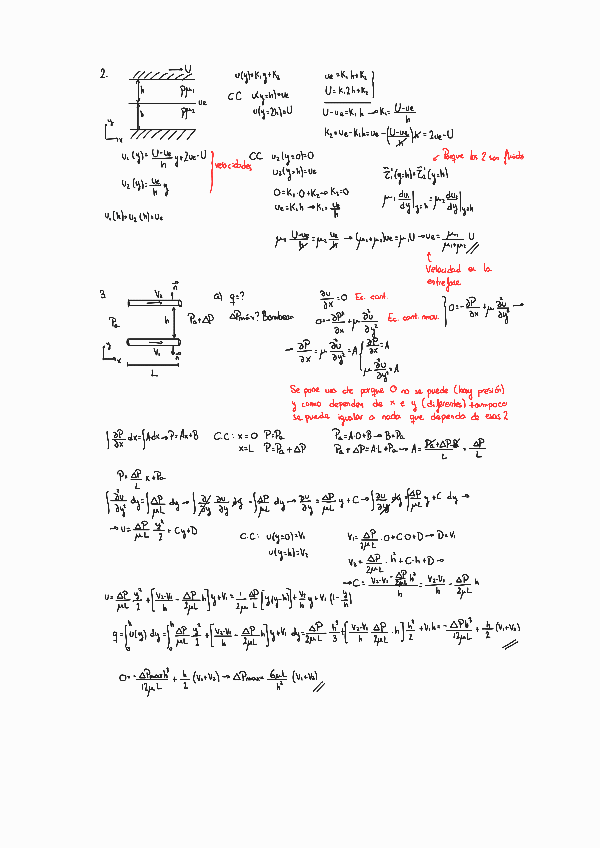 2.
→U
h
ρ,μ₁
ue
h
ρ,μ₂
y
x
u(y)=K₁y+K₂
CC u(y=h)=ue
u(y=2h)=U
ue=K₁h+K₂
U=K₁2h+K₂
U-ue=K₁h → K₁=(U-ue)/h
K₂=ue-K₁h=ue-((U-ue)/h)h=2ue-U
u₁(y)=(U-ue)/h y+2ue-U
u₂(y)=ue/h y
velocidades
u₁(h)=u₂(h)=ue
CC u₂(y=0)=0
u₂(y=h)=ue
0=K₁·0+K₂→K₂=0
ue=K₁h→K₁=ue/h
Porque los 2 son fluido
τ₁(y=h)=τ₂(y=h)
μ₁ du₁/dy|y=h=μ₂ du₂/dy|y=h
μ₁ (U-ue)/h=μ₂ ue/h → (μ₁+μ₂)ue=μ₁U→ue=μ₁/(μ₁+μ₂) U
↑
Velocidad en la
entrefase
3.
V₂
n
Pa
h
Pa+ΔP
y
x
V₁
n
L
a) q=?
ΔPmáx? Bombeo
∂u/∂x=0 Ec. cont.
0=-∂P/∂x+μ ∂²u/∂y² Ec. cant. mov.
0=-∂P/∂x+μ ∂²u/∂y² →
→ ∂P/∂x=μ ∂²u/∂y²=A
∂P/∂x=A
μ ∂²u/∂y²=A
Se pone una cte porque 0 no se puede (hay presión)
y como depende de x e y (diferentes) tampoco
se puede igualar a nada que dependa de esas 2
∫∂P/∂x dx=∫Adx→P=Ax+B
C.C: x=0 P=Pa
x=L P=Pa+ΔP
Pa=A·0+B→B=Pa
Pa+ΔP=A·L+Pa→A=(Pa+ΔP-B)/L=ΔP/L
P=ΔP/L x+Pa
∫∂²u/∂y² dy=∫ΔP/μL dy→∫∂/∂y ∂u/∂y dy=∫ΔP/μL dy→∂u/∂y=ΔP/μL y+C→∫∂u/∂y dy=∫ΔP/μL y+C dy→
→u=ΔP/μL y²/2+Cy+D
C.C: u(y=0)=V₁
u(y=h)=V₂
V₁=ΔP/2μL·0+C·0+D→D=V₁
V₂=ΔP/2μL·h²+C·h+D→
→C=(V₂-V₁-ΔP/2μL h²)/h=(V₂-V₁)/h-ΔP/2μL h
u=ΔP/μL y²/2+[(V₂-V₁)/h-ΔP/2μL h]y+V₁=1/2 ΔP/μL[y(y-h)]+V₂/h y+V₁(1-y/h)
q=∫₀ʰu(y)dy=∫₀ʰΔP/μL y²/2+[(V₂-V₁)/h-ΔP/2μL h]y+V₁ dy=ΔP/2μL h³/3+[(V₂-V₁)/h-ΔP/2μL·h]h²/2+V₁h=-ΔPh³/12μL+h/2(V₁+V₂)
0=-ΔPmaxh³/12μL+h/2(V₁+V₂)→ΔPmax=6μL/h²(V₁+V₂)